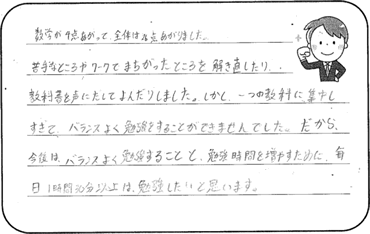 数学が9点あがって、全体は2点あがりました。
苦手なところやワークでまちがったところを解き直したり、
教科書を声にだしてよんだりしました。しかし、一つの教科に集中し
すぎて、バランスよく勉強をすることができませんでした。だから、
今後は、バランスよく勉強することと、勉強時間を増やすために、毎
日1時間30分以上は、勉強したいと思います。